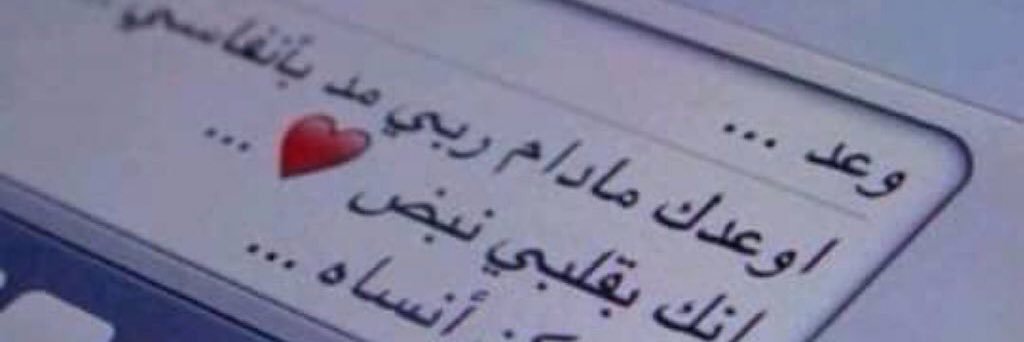 وعد ...
اوعدك مادام ربي مد بأنفاسي
انك بقلبي نبض ❤️ ...
أنساه ...